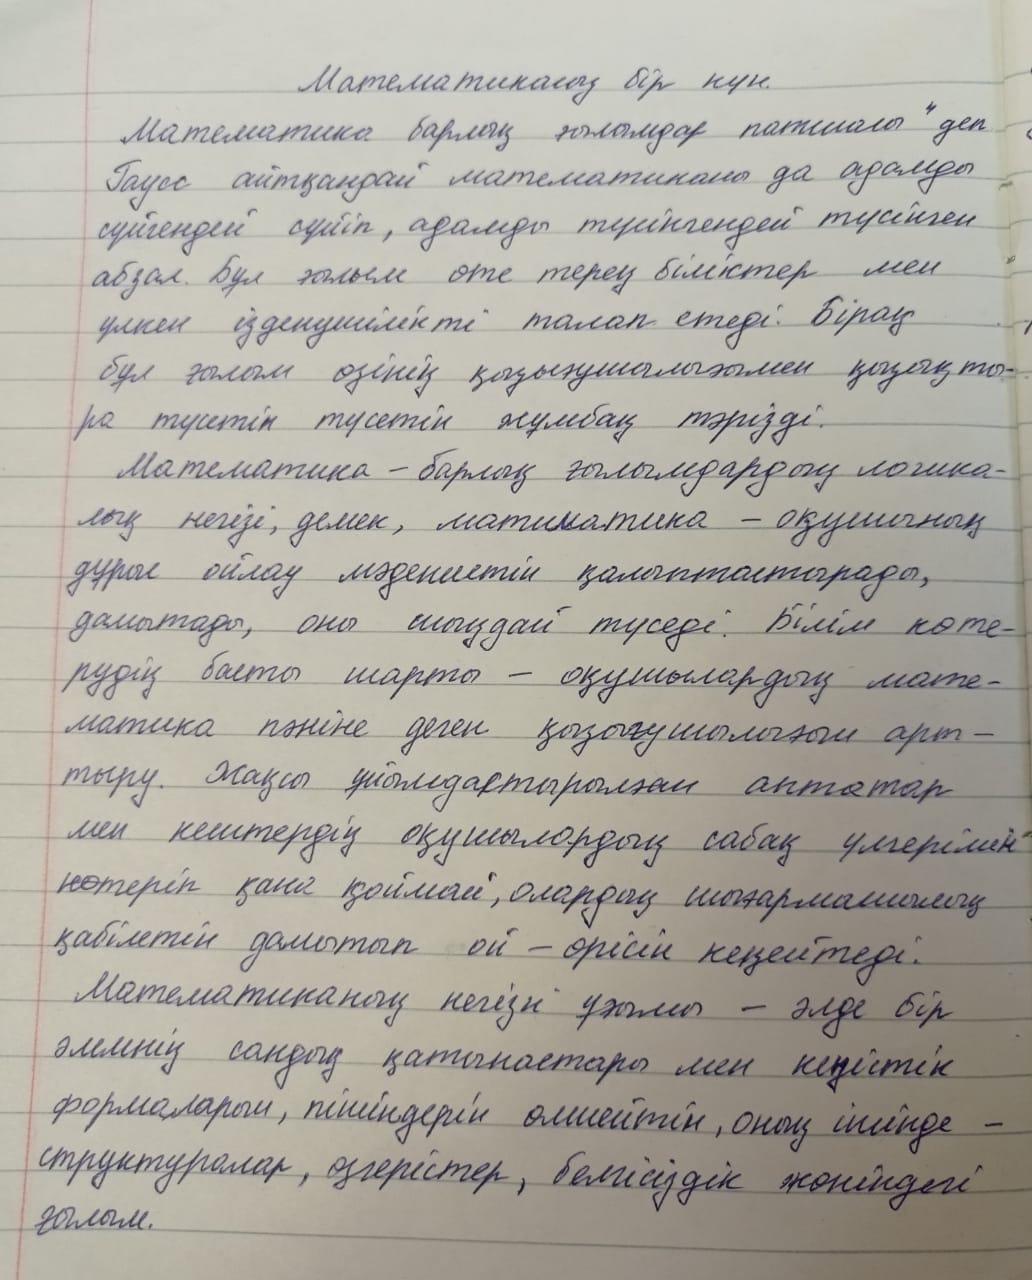 Математиканың бір күн.
Математика барлық ғылымдар патшасы" деп
Гаусс айтқандай математиканы да адамды
сүйгендей сүйіп, адамды түсінгендей түсінген
абзал. Бұл ғылым өте терең біліктер мен
үлкен ізденушілікті талап етеді. Бірақ
бұл ғылым өзінің қызығушылығымен қызықты-
ра түсетін түсетін жұмбақ тәрізді.
Математика – барлық ғылымдардың логика-
лық негізі, демек, математика – оқушының
дұрыс ойлау мәдениетін қалыптастырады,
дамытады, оны шыңдай түседі. Білім көте-
рудің басты шарты – оқушылардың мате-
матика пәніне деген қызығушылығын арт-
тыру. Жақсы ұйымдастырылған апталар
мен кештердің оқушылардың сабақ үлгерімін
көтеріп қана қоймай, олардың шығармашылық
қабілетін дамытып ой – өрісін кеңейтеді.
Математиканың негізгі ұғымы – әлде бір
әлемнің сандық қатынастары мен кеңістік
формаларын, пішіндерін өлшейтін, оның ішінде –
структуралар, өзгерістер, белгісіздік жөніндегі
ғылым.